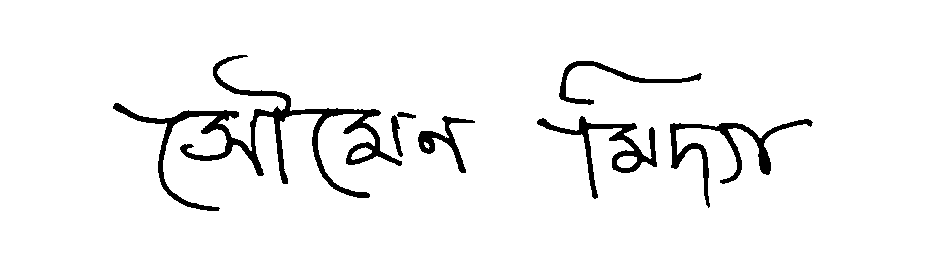 সৌমেন মিদ্যা